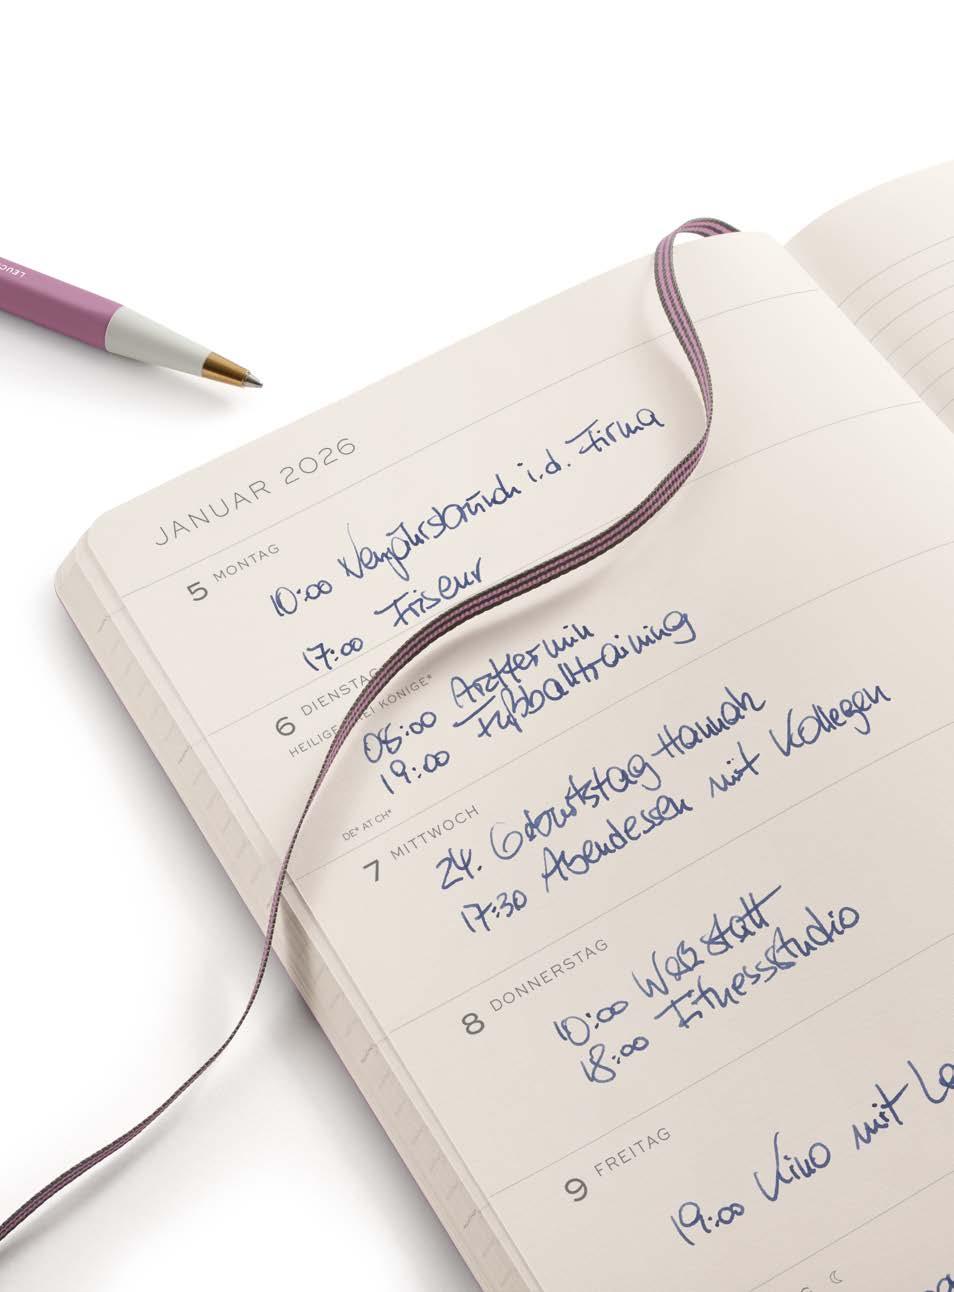 LEUC
JANUAR 2026
5 MONTAG
10:00 Neujahrsbrunch i.d. Firma
17:00 Friseur
6 DIENSTAG
HEILIGE DREI KÖNIGE*
08:00 Arzttermin
19:00 Fußballtraining
DE* AT CH*
7 MITTWOCH
24. Geburtstag Hannah
17:30 Abendessen mit Kollegen
8 DONNERSTAG
10:00 Werkstatt
18:00 Fitnessstudio
9 FREITAG
19:00 Kino mit Le